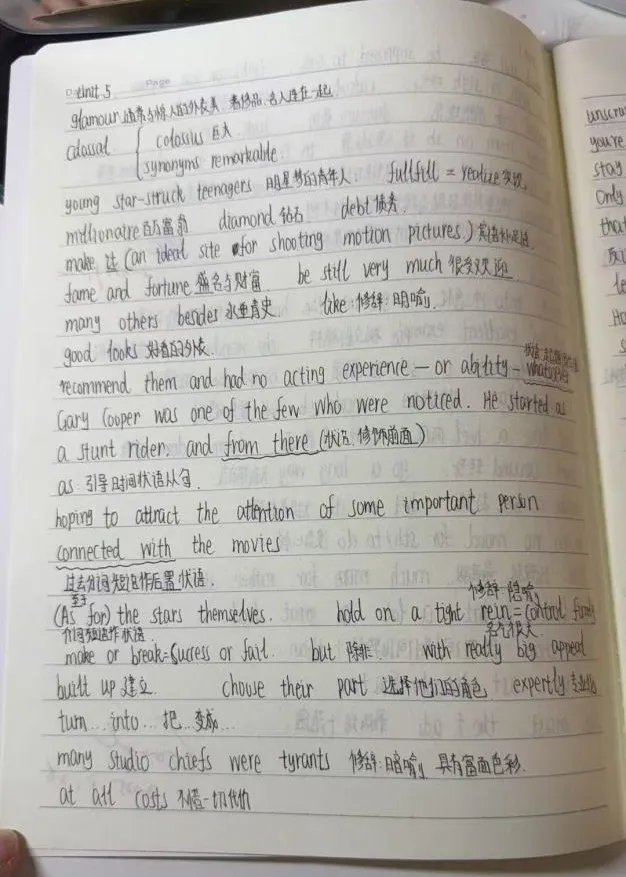 Unit 5 Page
glamour 通常与惊人的外衣美 奢侈品 名人连在一起
colossal { colosius 巨大.
synonyms remarkable.
young star-struck teenagers 明星梦的青年人. fullfill = realize 实现.
millionaire 百万富翁 diamond 钻石 debt 债务.
make 过 (an ideal site for shooting motion pictures.) 宾语补足语
fame and fortune 盛名与财富. be still very much 很受欢迎
many others besides 永垂青史. like:修辞:明喻.
good looks 好看的外表. 状语
recommend them and had no acting experience — or ability — whatsoever
Gary Cooper was one of the few who were noticed. He started as
a stunt rider. and from there (状语. 修饰前面)
as 引导时间状语从句.
hoping to attract the attention of some important person
connected with the movies
过去分词短语作后置状语.
至于 修辞:暗喻
(As for) the stars themselves. hold on a tight rein = control firmly
介词短语作状语. 名气很大.
make or break=Success or fail. but 除非. with really big appeal
built up 建立. choose their part 选择他们的角色 expertly 专业地
turn...into... 把...变成...
many studio chiefs were tyrants 修辞:暗喻 具有富面色彩.
at all costs 不惜一切代价
unscru
you're
stay
Only
that
反
le
Ho
s